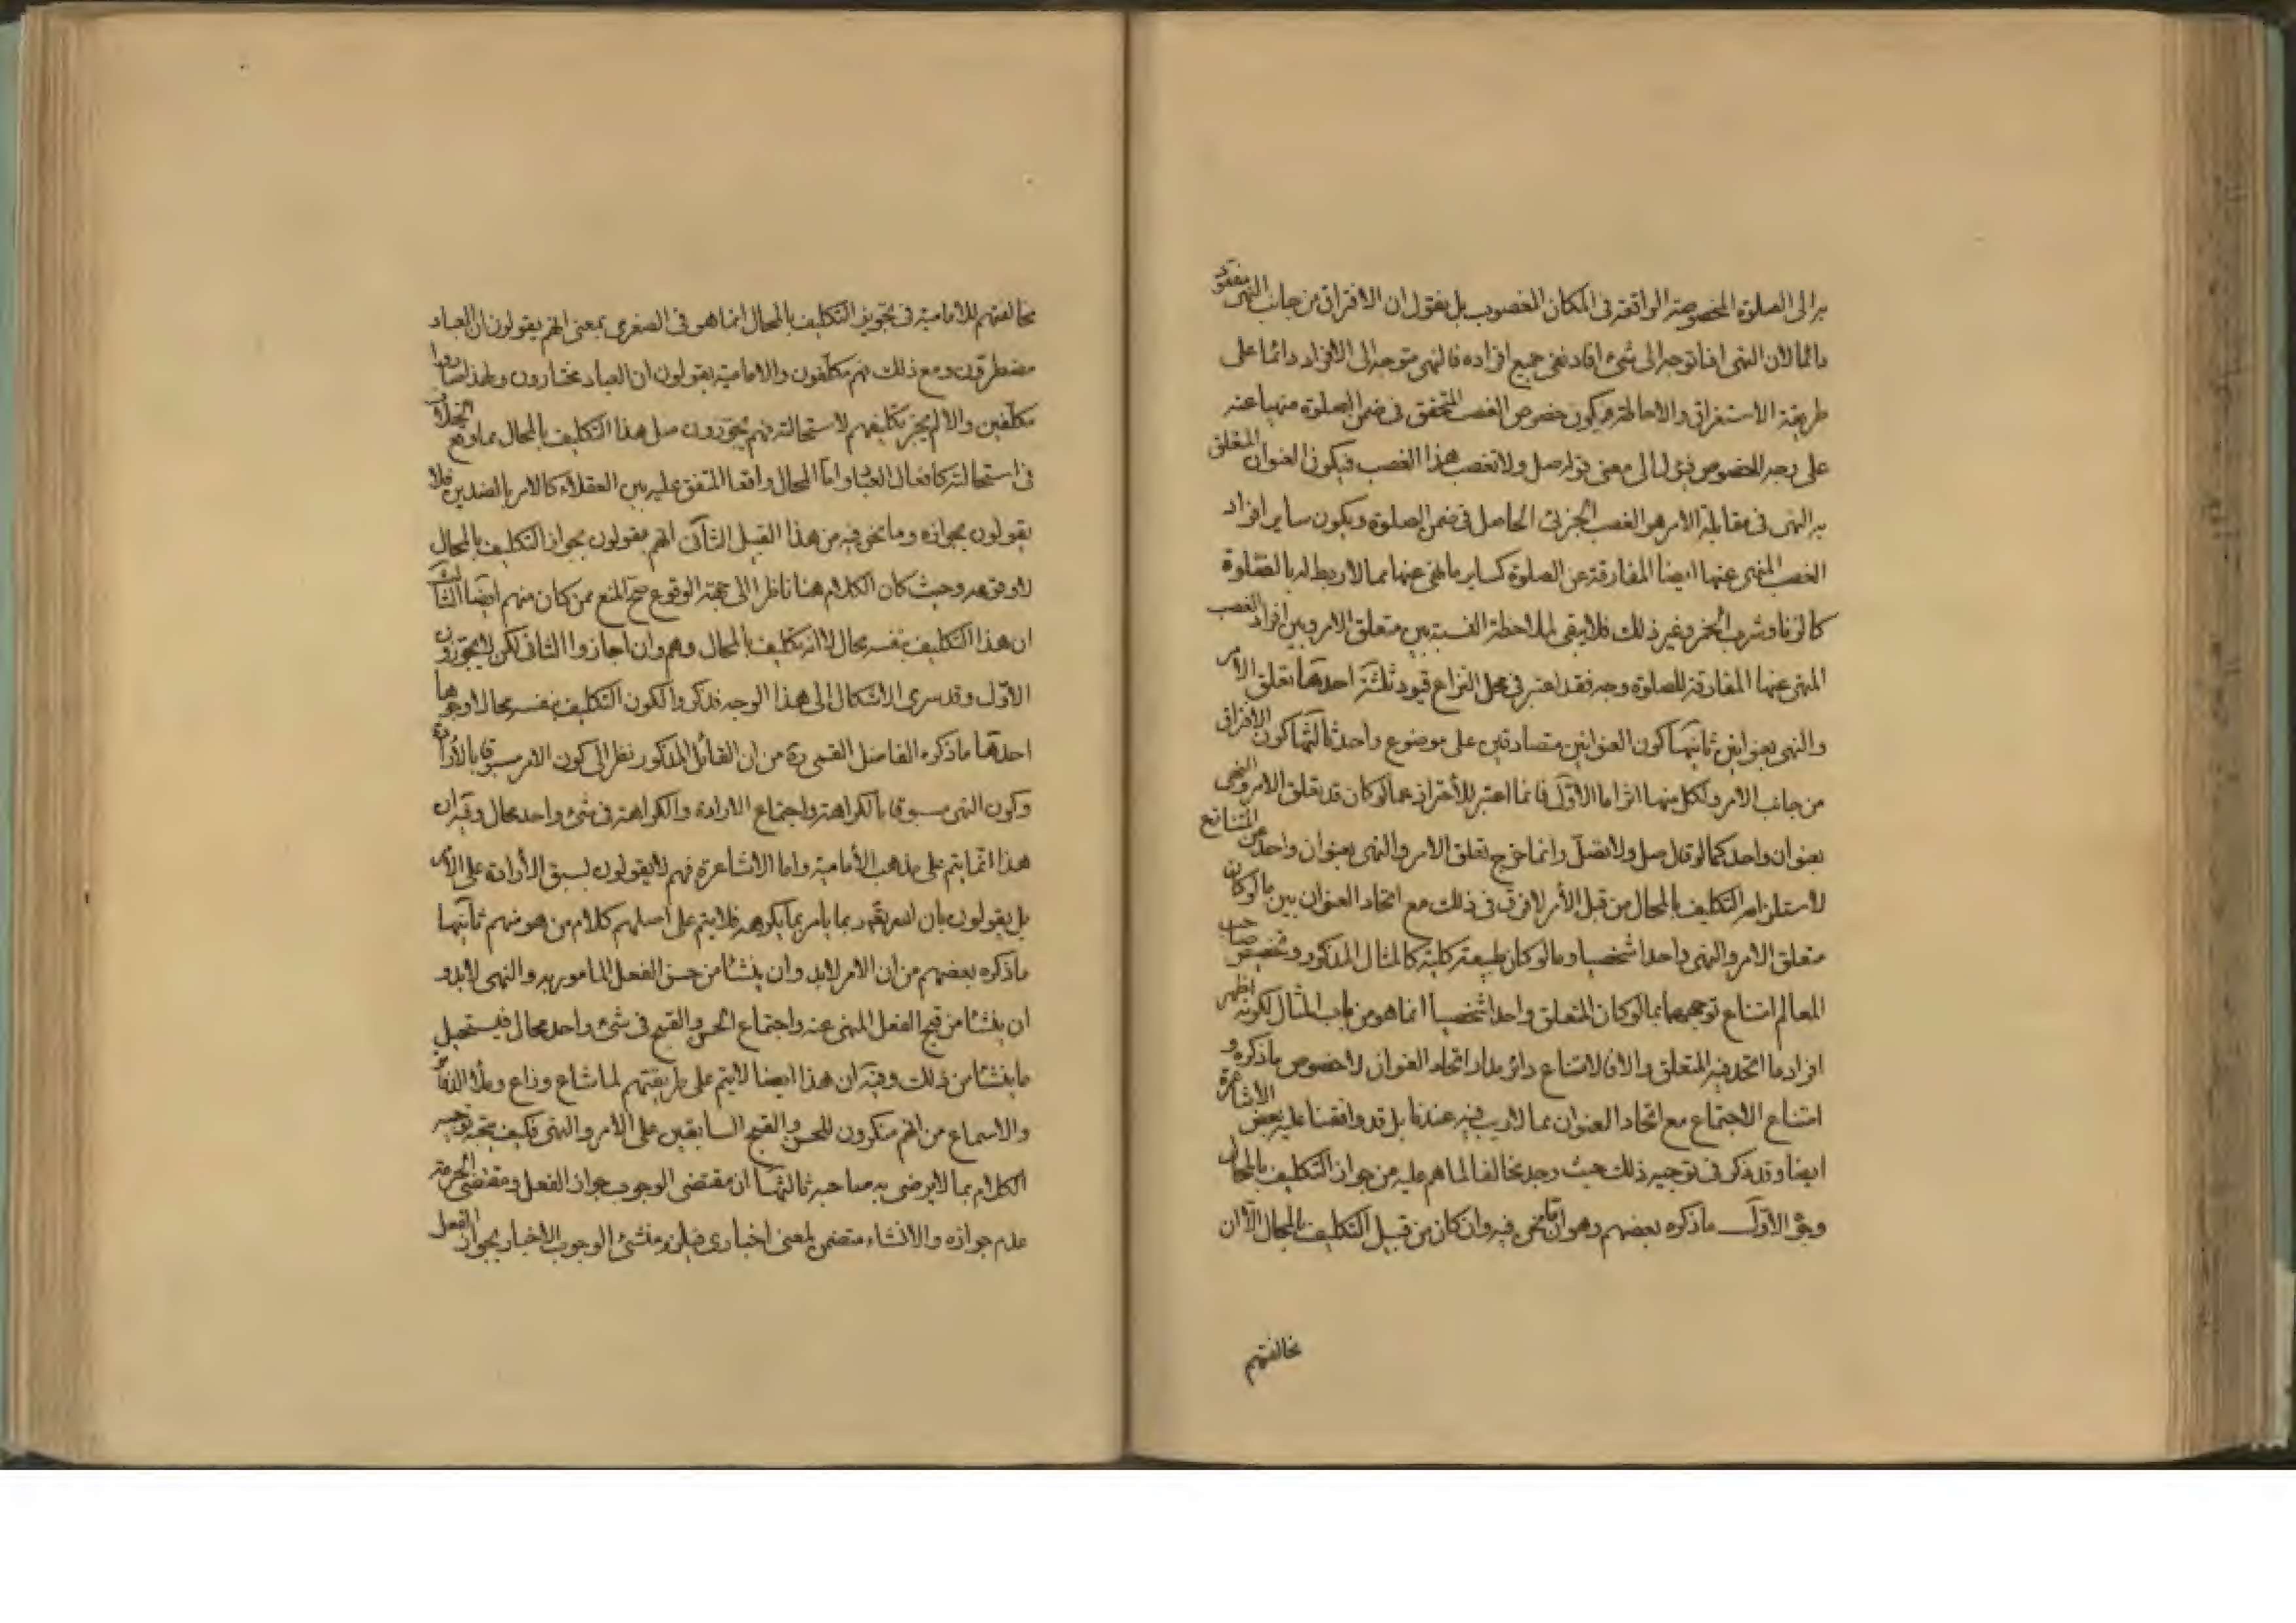 به الى الصلوة المخصوصة الواقعة فى المكان المغصوب بل يقول ان الافتراق من جانب النهى مفقود
دائما لان النهى اذا توجه الى شىء افاد نفى جميع افراده فالنهى متوجه الى الافراد دائما على
طريقة الاستغراق والاحاطة فيكون خصوص الغصب المتحقق فى ضمن الصلوة منهيا عنه
على وجه الخصوص فيؤل الى معنى قوله صل ولا تغصب هذا الغصب فيكون العنوان المتعلق
به النهى فى مقابلة الامر هو الغصب الجزئى الحاصل فى ضمن الصلوة ويكون ساير افراد
الغصب المنهى عنها ايضا المفارقة عن الصلوة كساير ما نهى عنها مما لا ربط له بالصلوة
كالزنا وشرب الخمر وغير ذلك فلا يبقى لملاحظة النسبة بين متعلق الامر وبين افراد الغصب
المنهى عنها المفارقة للصلوة وجه فقد اعتبر فى محل النزاع قيود ثلثة احدها تعلق الامر
والنهى بعنوانين ثانيها كون العنوانين متصادقين على موضوع واحد ثالثها كون الافتراق
من جانب الامر ولكل منها اثر اما الاول فانما اعتبر للأحتراز عما لو كان قد تعلق الامر والنهى
بعنوان واحد كما لو قال صل ولا تصل وانما خرج تعلق الامر والنهى بعنوان واحد عن المتنازع
لاستلزامه التكليف بالمحال من قبل الأمر لا فرق فى ذلك مع اتحاد العنوان بين ما لو كان
متعلق الامر والنهى واحدا شخصيا وما لو كان طبيعة كلية كالمثال المذكور وتخصيص صاحب
المعالم امتناع توجههما بما لو كان المتعلق واحدا شخصيا انما هو من باب المثال لكونه اظهر
افراد ما اتحد فيه المتعلق والا فالامتناع دائر مدار اتحاد العنوان لا خصوص ما ذكره و
امتناع الاجتماع مع اتحاد العنوان مما لا ريب فيه عندنا بل قد وافقنا عليه بعض الاشاعرة
ايضا وقد ذكر فى توجيه ذلك حيث وجد مخالفا لما هم عليه من جواز التكليف بالمحال
وجوه الاول ما ذكره بعضهم وهو ان ما نحن فيه وان كان من قبيل التكليف بالمحال الا ان
مخالفتهم
مخالفتهم للامامية فى تجويز التكليف بالمحال انما هو فى الصغرى بمعنى انهم يقولون ان العباد
مضطرون ومع ذلك هم مكلفون والامامية يقولون ان العباد مختارون ولهذا صاروا
مكلفين والا لم يجز تكليفهم لاستحالته فهم يجوزون مثل هذا التكليف بالمحال مما وقع الخلاف
فى استحالته كافعال العباد واما المحال واقعا المتفق عليه بين العقلاء كالامر بالضدين فلا
يقولون بجوازه وما نحن فيه من هذا القبيل الثانى انهم يقولون بجواز التكليف بالمحال
لا وقوعه وحيث كان الكلام هنا ناظرا الى جهة الوقوع صح المنع ممن كان منهم ايضا الثالث
ان هذا التكليف بنفسه محال لا انه تكليف بالمحال وهم وان اجازوا الثانى لكن لا يجوزون
الاول وقد سرى الاشكال الى هذا الوجه فذكروا لكون التكليف بنفسه محالا وجوها
احدها ما ذكره الفاضل القمى ره من ان القائل المذكور نظر الى كون الامر مسبوقا بالأرادة
وكون النهى مسبوقا بالكراهة واجتماع الارادة والكراهة فى شىء واحد محال وفيه ان
هذا انما يتم على مذهب الأمامية واما الاشاعرة فهم لا يقولون بسبق الأرادة على الامر
بل يقولون بان الله تعالى قد يامر بما يكرهه فلا يتم على اصلهم كلام من هو منهم ثانيها
ما ذكره بعضهم من ان الامر لابد وان ينشا من حسن الفعل المامور به والنهى لابد و
ان ينشا من قبح الفعل المنهى عنه واجتماع الحسن والقبح فى شىء واحد محال فيستحيل
ما ينشا من ذلك وفيه ان هذا ايضا لا يتم على طريقتهم لما شاع وذاع وملأ الدفاتر
والاسماع من انهم منكرون للحسن والقبح السابقين على الامر والنهى فكيف يتجه توجيه
الكلام بما لا يرضى به صاحبه ثالثها ان مقتضى الوجوب جواز الفعل ومقتضى الحرمة
عدم جوازه والانشاء متضمن لمعنى اخبارى فيلزم منشئ الوجوب الاخبار بجواز الفعل